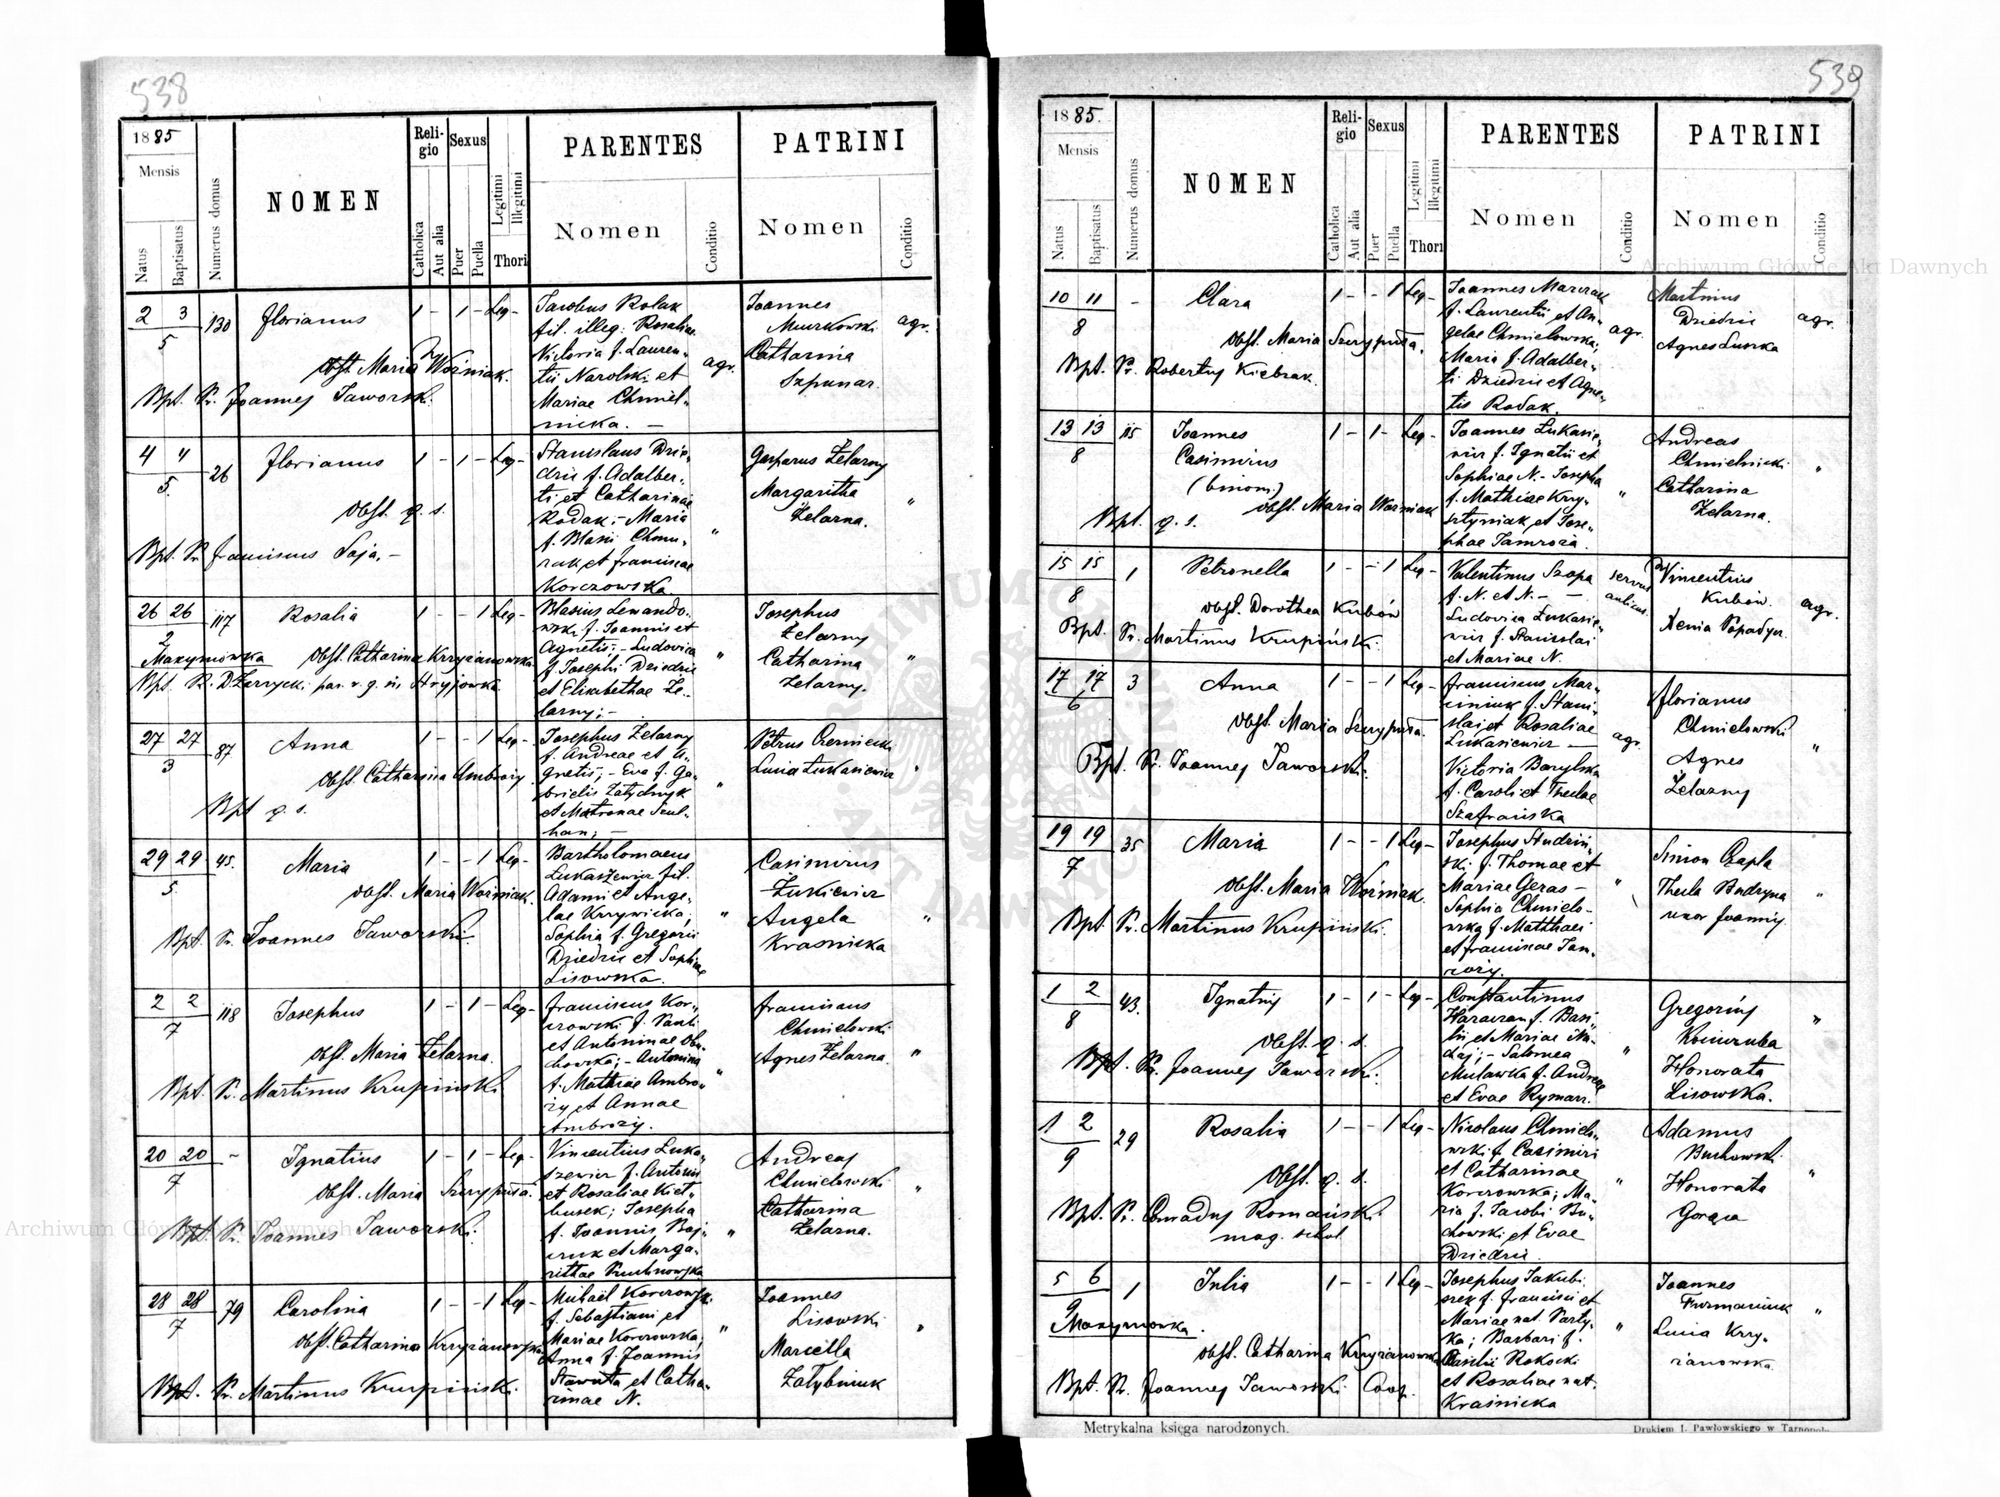 538
1885
Mensis
Natus
Baptisatus
Numerus domus
NOMEN
Religio
Catholica
Aut alia
Sexus
Puer
Puella
Legitimi
Illegitimi
Thori
PARENTES
Nomen
Conditio
PATRINI
Nomen
Conditio
2 3
5
130
Florianus
1 - 1 - Leg -
Obst. Maria Woźniak.
Bpt. Pr. Joannes Jaworski.
Jacobus Rolak
fil. illeg: Rosaliae
Victoria f. Lauren-
tii Narolski et
Mariae Chmiel-
nicka. -
agr.
Joannes
Catharina
Szpunar.
agr.
4 4
5.
26
Florianus
1 - 1 - Leg -
Obst. q. s.
Bpt. Pr. Franciscus Soja, -
Stanislaus Dzie-
dzic f. Adalber-
ti et Catharinae
Rodak; - Maria
f. Blasii Chmu-
rak et Franciscae
Korczowska
"
Gasparus Żelazny
Margaritha
Żelazna.
"
26 26
2
117
Maxymówka
Rosalia
1 - - 1 Leg -
Obst. Catharina Krzyżanowska
Blasius Lewando-
wski f. Joannis et
Agnetis; - Ludovica
f. Josephi Dziedzic
et Elisabethae Że-
lazny; -
"
Josephus
Żelazny
Catharina
Żelazny.
"
27 27
3
87
Anna
1 - - 1 Leg -
Obst. Catharina Ambroży.
Bpt q. s.
Josephus Żelazny
f. Andreae et A-
gnetis; - Eva f. Ga-
brielis Załydnyk
et Matronae Szul-
han; -
"
Petrus Czernicki
Lucia Łukasiewicz
29 29
5
45.
Maria
1 - - 1 Leg -
Obst. Maria Woźniak.
Bpt. Pr. Joannes Jaworski.
Bartholomaeus
Łukaszewicz fil.
Adami et Ange-
lae Krzywicka;
Sophia f. Gregorii
Dziedzic et Sophiae
Lisowska.
"
Casimirus
Żukiewicz
Angela
Kraśnicka
"
2 2
7
118
Josephus
1 - 1 - Leg -
Obst. Maria Żelazna.
Bpt. Pr. Martinus Krupiński
Franciscus Kor-
czowski f. Pauli
et Antoninae Obu-
chowska; - Antonina
f. Mathiae Ambro-
ży et Annae
Ambroży.
"
Franciscus
Chmielowski
Agnes Żelazna
"
20 20
7
-
Ignatius
1 - 1 - Leg -
Obst. Maria Szczypuła.
Bpt. Pr. Joannes Jaworski.
Vincentius Łuka-
szewicz f. Antonii
et Rosaliae Kieł-
busek; Josepha
f. Joannis Baj-
czuk et Marga-
"
Andreas
Chmielowski
Catharina
Żelazna.
"
28 28
7
79
Carolina
1 - - 1 Leg -
Obst. Catharina Krzyżanowska
Bpt. Pr. Martinus Krupiński.
Michael Korczowski
f. Sebastiani et
Mariae Korczowska,
Anna f. Joannis
et Catha-
rinae N.
"
Joannes
Lisowski
Marcella
"
539
1885.
Mensis
Natus
Baptisatus
Numerus domus
NOMEN
Religio
Catholica
Aut alia
Sexus
Puer
Puella
Legitimi
Illegitimi
Thori
PARENTES
Nomen
Conditio
PATRINI
Nomen
Conditio
10 11
8
-
Clara
1 - - 1 Leg -
Obst. Maria Szczypuła.
Bpt. Pr. Robertus Kiebzak.
Joannes Marczak
f. Laurentii et An-
gelae Chmielowska;
Maria f. Adalber-
ti Dziedzic et Agne-
tis Rodak.
agr.
Martinus
Dziedzic
Agnes Luska
agr.
13 13
8
115
Joannes
Casimirus
(binom.)
1 - 1 - Leg -
Obst. Maria Woźniak
Bpt. q. s.
Joannes Łukasie-
wicz f. Ignatii et
Sophiae N. - Josepha
f. Mathiae Krzy-
sztyniak et Jose-
phae Jamroża.
"
Andreas
Chmielnicki
Catharina
Żelazna.
"
15 15
8
1
Petronella
1 - - 1 Leg -
Obst. Dorothea Kubów
Bpt. Pr. Martinus Krupiński.
Valentinus Szopa
f. N. et N. - -
Ludovica Łukasie-
wicz f. Stanislai
et Mariae N.
servus
aulicus.
Vincentius
Kubów.
Xenia Popadyn.
agr.
17 17
6
3
Anna
1 - - 1 Leg -
Obst. Maria Szczypuła.
Bpt. Pr. Joannes Jaworski.
Franciscus Mar-
ciniuk f. Stani-
slai et Rosaliae
Łukasiewicz -
Victoria Barylska
f. Caroli et Theclae
Szafrańska
agr.
Florianus
Chmielowski
Agnes
Żelazny
"
19 19
7
35
Maria
1 - - 1 Leg -
Obst. Maria Woźniak.
Bpt. Pr. Martinus Krupiński.
Josephus Studziń-
ski f. Thomae et
Mariae Geras -
Sophia Chmielo-
wska f. Matthaei
et Franciscae Jam-
roży.
"
Simon Czapla
Thecla Budzyna
uxor Joannis.
"
1 2
8
43.
Ignatius
1 - - 1 - Leg -
Obst. q. s.
Bpt. Pr. Joannes Jaworski.
Constantinus
Haraszan f. Basi-
lii et Mariae
Salomea
Mulawka f. Andreae
et Evae Rymarz.
"
Gregorius
Honorata
Lisowska.
"
1 2
9
29
Rosalia
1 - - 1 Leg -
Obst. q. s.
Bpt. Pr. Conradus Romański
mag. schol.
Nicolaus Chmielo-
wski f. Casimiri
et Catharinae
Korczowska; Ma-
ria f. Jacobi Bu-
chowski et Evae
Dziedzic.
"
Adamus
Buchowski
Honorata
Gorąca
"
5 6
9
1
Maxymówka.
Julia
1 - - 1 Leg -
Obst. Catharina Krzyżanowska
Bpt. Pr. Joannes Jaworski Coop.
Josephus Jakubi-
szek f. Francisci et
Mariae nat. Party-
ka; Barbari f.
Basilii Rokocki
et Rosaliae nat.
Kraśnicka
"
Joannes
Furmaniuk
Lucia Krzy-
żanowska
"
Metrykalna księga narodzonych.
Drukiem I. Pawłowskiego w Tarnopolu
Archiwum Główne Akt Dawnych
Archiwum Główne Akt Dawnych
ARCHIWUM GŁÓWNE AKT DAWNYCH